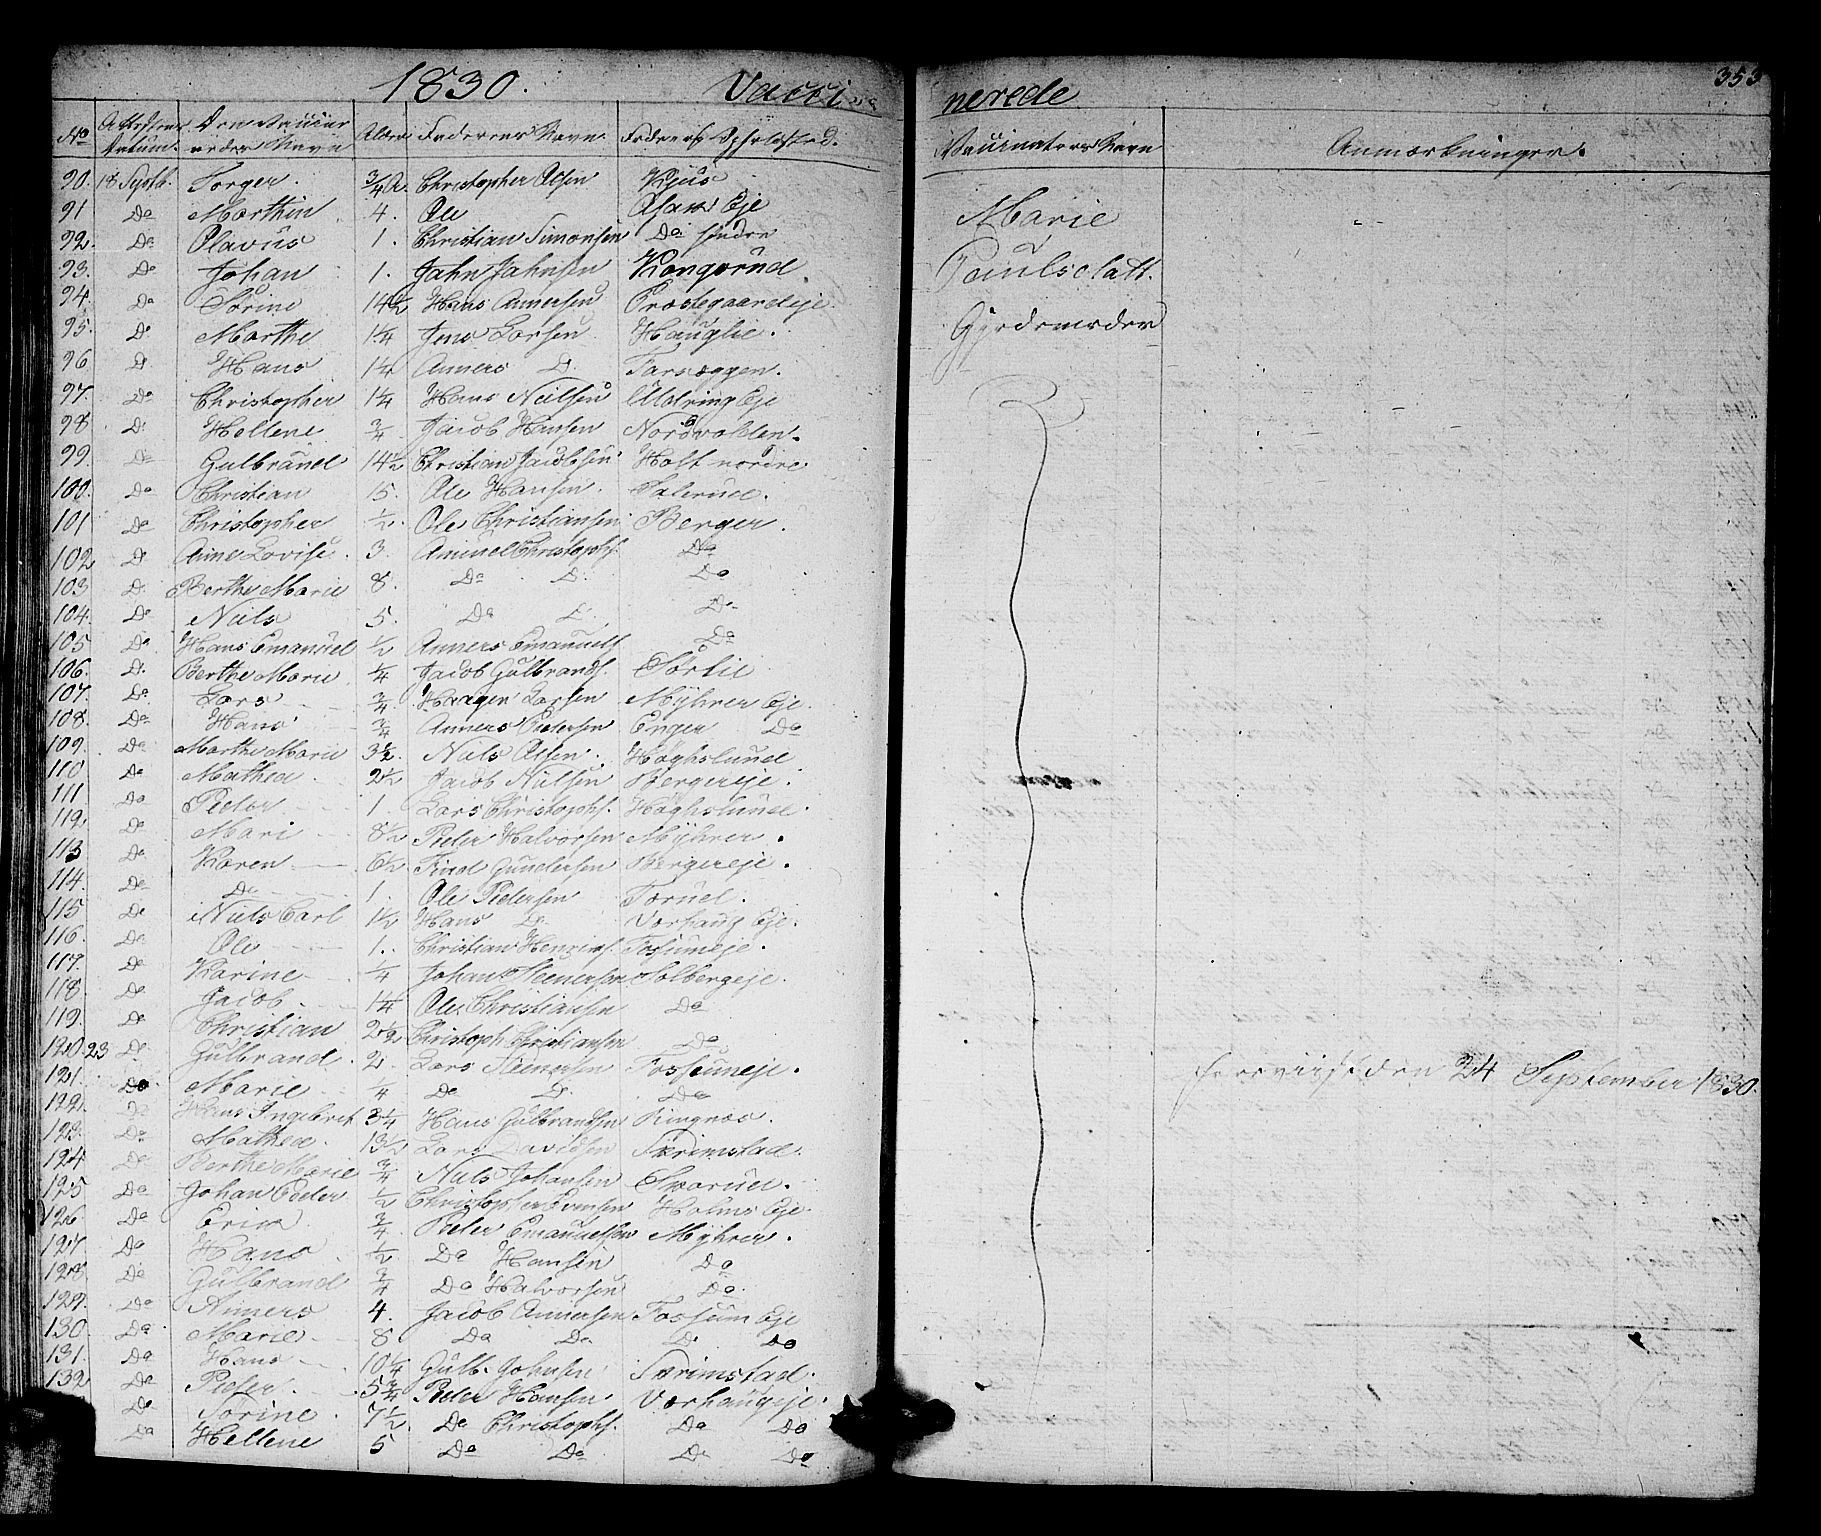 1830. Vacci nerede 353
No Attestens Datum. Den Vaccineredes Navn Alder Faderens Navn. Faderens Opholdsted. Vaccinateurs Navn Anmærkninger.
90. 18 Septb. Torger. 3/4 A. Christopher Olsen Kjus
91 Do Marthin 4. Ole Eje
92. Do Olavus 1. Christian Simonsen Do søndre
93. Do Johan 1. Jahn Jahnsen Kongsrud
94. Do Sørine 14 1/2 Hans Annersen Præstegaardeje
95. Do Marthe 1 1/4 Jens Larsen Hauglie.
96 D Hans 1 1/4 Anners D. Farsæggen.
97. Do Christopher 1 1/4 Hans Nielsen Eje
98 D. Hellene 3/4 Jacob Hansen Nordvolden.
99. Do Gulbrand 14 1/2 Christian Jacobsen Holt nordre
100. Do Christian 15. Ole Hansen. Salerud.
101 Do Christopher 1/2. Ole Christiansen Berger.
102 D Anne Lovise. 3. Christophs. Do
103 D. Berthe Marie 8. Do D. Do
104. Do Niels 5. Do D. Do
105 Do Hans Emanuel 1/2 Anners Emanuels Do
106. D. Berthe Marie 1/4 Jacob Gulbrands. Sørlie
107. Do Lars 3/4 Haagen Larsen Myhrer Eje.
108. Do Hans 3/4 Anners Pedersen Enger Do
109. Do Marthe Marie 3 1/2. Niels Olsen. Høghslund
110 Do Mathea. 2 1/2 Jacob Nielsen Bergereje.
111. Do Peder 1 Lars Christophs. Høghslund.
112. Do Mari 8 1/2 Peder Halvorsen Myhrer.
113 Do Karen 6 1/2 Gundersen Bergereje.
114. Do Do 1. Ole Pedersen Torud.
115 Do Niels Carl 1 1/2 Hans D. Vorhaug Eje.
116. Do Ole 1. Christian Fossumeje.
117. Do Karine 1/4 Johan Steenersen Solbergeje.
118. Do Jacob. 1 1/4 Ole Christiansen Do
119. Do Christian 2 1/2 Christoph Christiansen Do
120. 23 Do Gulbrand. 2. Lars Fossumeje.
121. Do Marie 1/4 Do D. Do
122. Do Hans Ingebret 3 1/4 Hans Gulbrandsen Ringnæs.
123. Do Mathea. 13 1/2 Lars Davidsen Skrimstad.
124 Do Berthe Marie 3/4 Niels Johansen Svarud.
125 Do Johan Peder 1/2 Christopher Evensen Holms Eje.
126. Do Erik 3/4 Peder Emanuelsen Myhrer.
127 Do Hans 1/2 Do Hansen Do
128. Do Gulbrand 3/4 Do Halvorsen Do.
129. Do Anners 4. Jacob Annersen Fossum Eje
130. Do Marie 8 Do Do D. Do
131. Do Hans 10 1/4 Gulb. Johnsen Skrimstad.
132 Do Peder. 5 3/4 Peder Hansen. Vorhaugeje.
Do Sørine. 7 1/2. Do Christophs. Do Do
Do Hellene 5 Do Do Do Do
Marie
Paulsdatt.
Gjordemoder
24 September 1830.